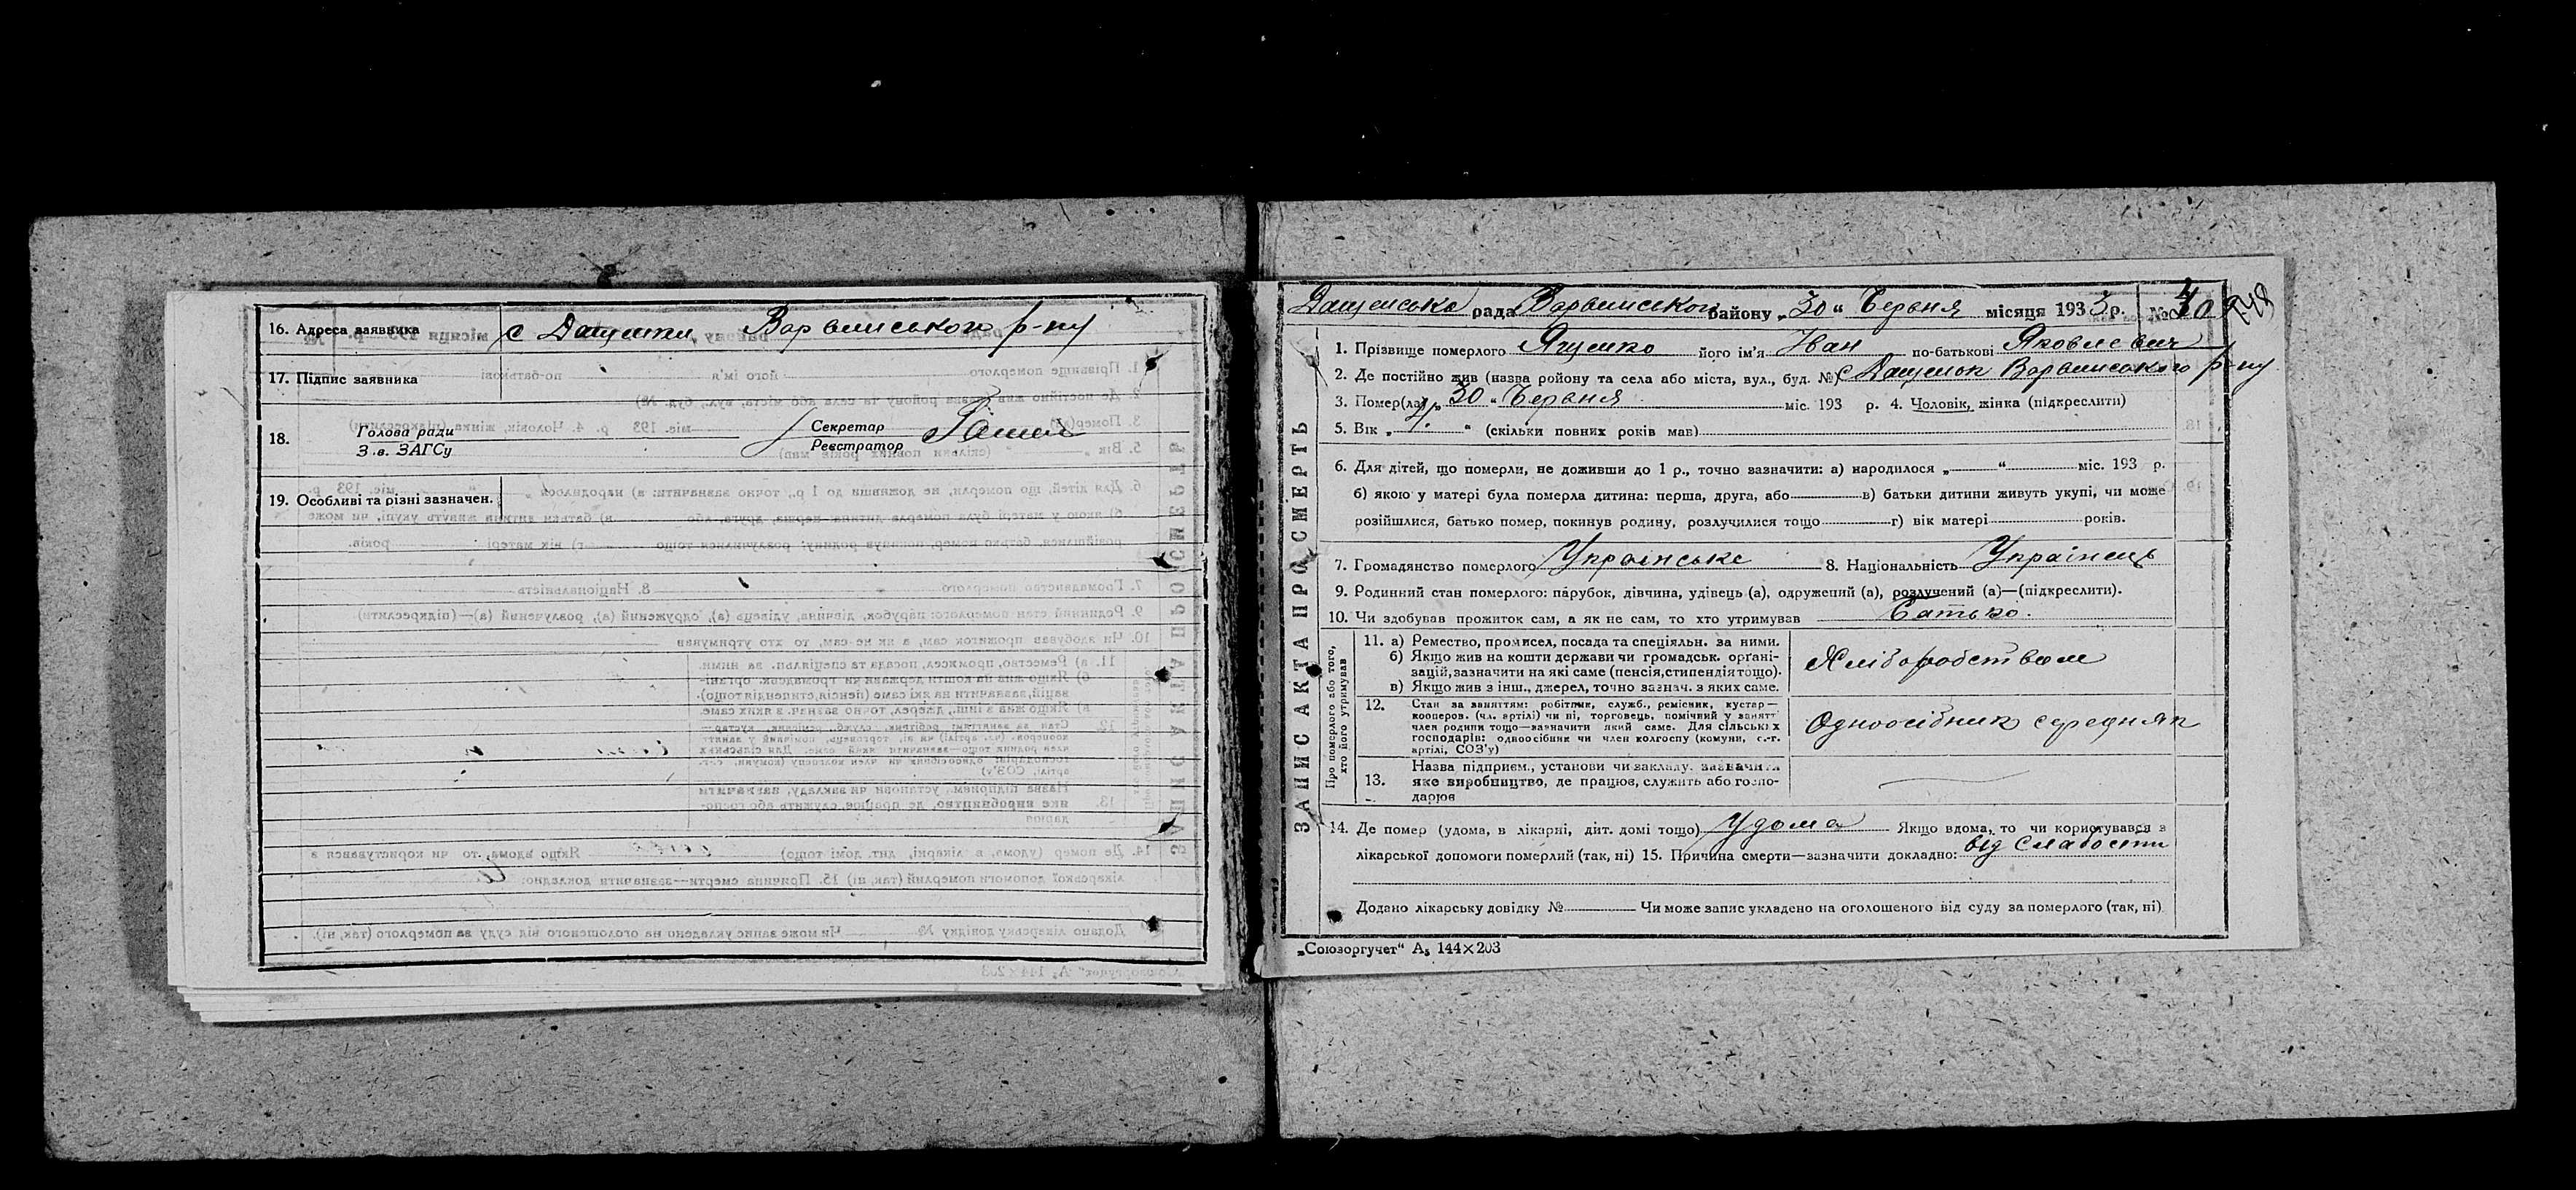 16. Адреса заявника с Дащенки Варвинського р-ну
17. Підпис заявника
18. Голова ради
З.в. ЗАГСу
Секретар
Реєстратор
19. Особливі та різні зазначен.
ЗАПИС АКТА ПРО СМЕРТЬ
Дащенська рада Варвинського району „30“ Червня місяця 1933 р. №
1. Прізвище померлого Ященко його ім'я Іван по-батькові Яковлевич
2. Де постійно жив (назва ройону та села або міста, вул., буд. №) с Дащенки Варвинського р-ну
3. Помер(ла) „30“ Червня міс. 193 р. 4. Чоловік, жінка (підкреслити)
5. Вік „ “ (скільки повних років мав)
6. Для дітей, що померли, не доживши до 1 р., точно зазначити: а) народилося „ “ міс. 193 р.
б) якою у матері була померла дитина: перша, друга, або в) батьки дитини живуть укупі, чи може
розійшлися, батько помер, покинув родину, розлучилися тощо г) вік матері років.
7. Громадянство померлого Українське 8. Національність Українець
9. Родинний стан померлого: парубок, дівчина, удівець (а), одружений (а), розлучений (а)—(підкреслити).
10. Чи здобував прожиток сам, а як не сам, то хто утримував Батько.
Про померлого або того, хто його утримував
11. а) Ремество, промисел, посада та спеціяльн. за ними.
б) Якщо жив на кошти держави чи громадськ. організацій, зазначити на які саме (пенсія, стипендія тощо).
в) Якщо жив з інш., джерел, точно зазнач. з яких саме.
Хліборобством
12. Стан за заняттям: робітник, служб., ремісник, кустар—
кооперов. (чл. артілі) чи ні, торговець, помічний у занятт
член родини тощо—зазначити який саме. Для сільських
господарів: одноосібник чи член колгоспу (комуни, с.-г.
артілі, СОЗ'у)
Одноосібник середняк
13. Назва підприєм., установи чи закладу. зазначити
яке виробництво, де працює, служить або госпо-
дарює
14. Де помер (удома, в лікарні, дит. домі тощо) Удома Якщо вдома, то чи користувався з
лікарської допомоги померлий (так, ні) 15. Причина смерти—зазначити докладно: від слабости
Додано лікарську довідку № Чи може запис укладено на оголошеного від суду за померлого (так, ні)
„Союзоргучет“ А₅ 144×203